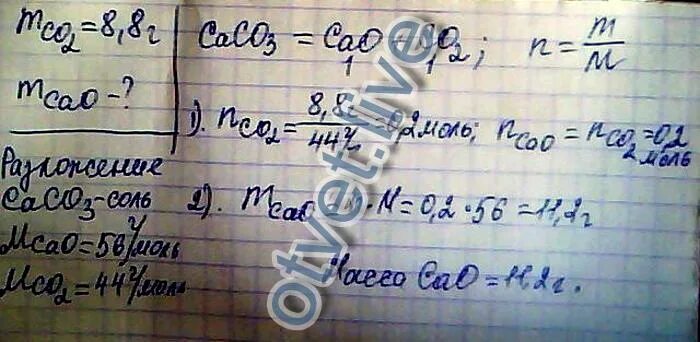 mCO₂=8,8г
mCaO-?
Разложение
CaCO₃-соль
MCaO=56г/моль
MCO₂=44г/моль
CaCO₃=CaO+CO₂; n=m/M
1 1
1). nCO₂=8,8г/44г/ =0,2моль; nCaO=nCO₂=0,2 моль
2). mCaO=n·M=0,2·56=11,2г
Масса CaO=11,2г.
otvet.live